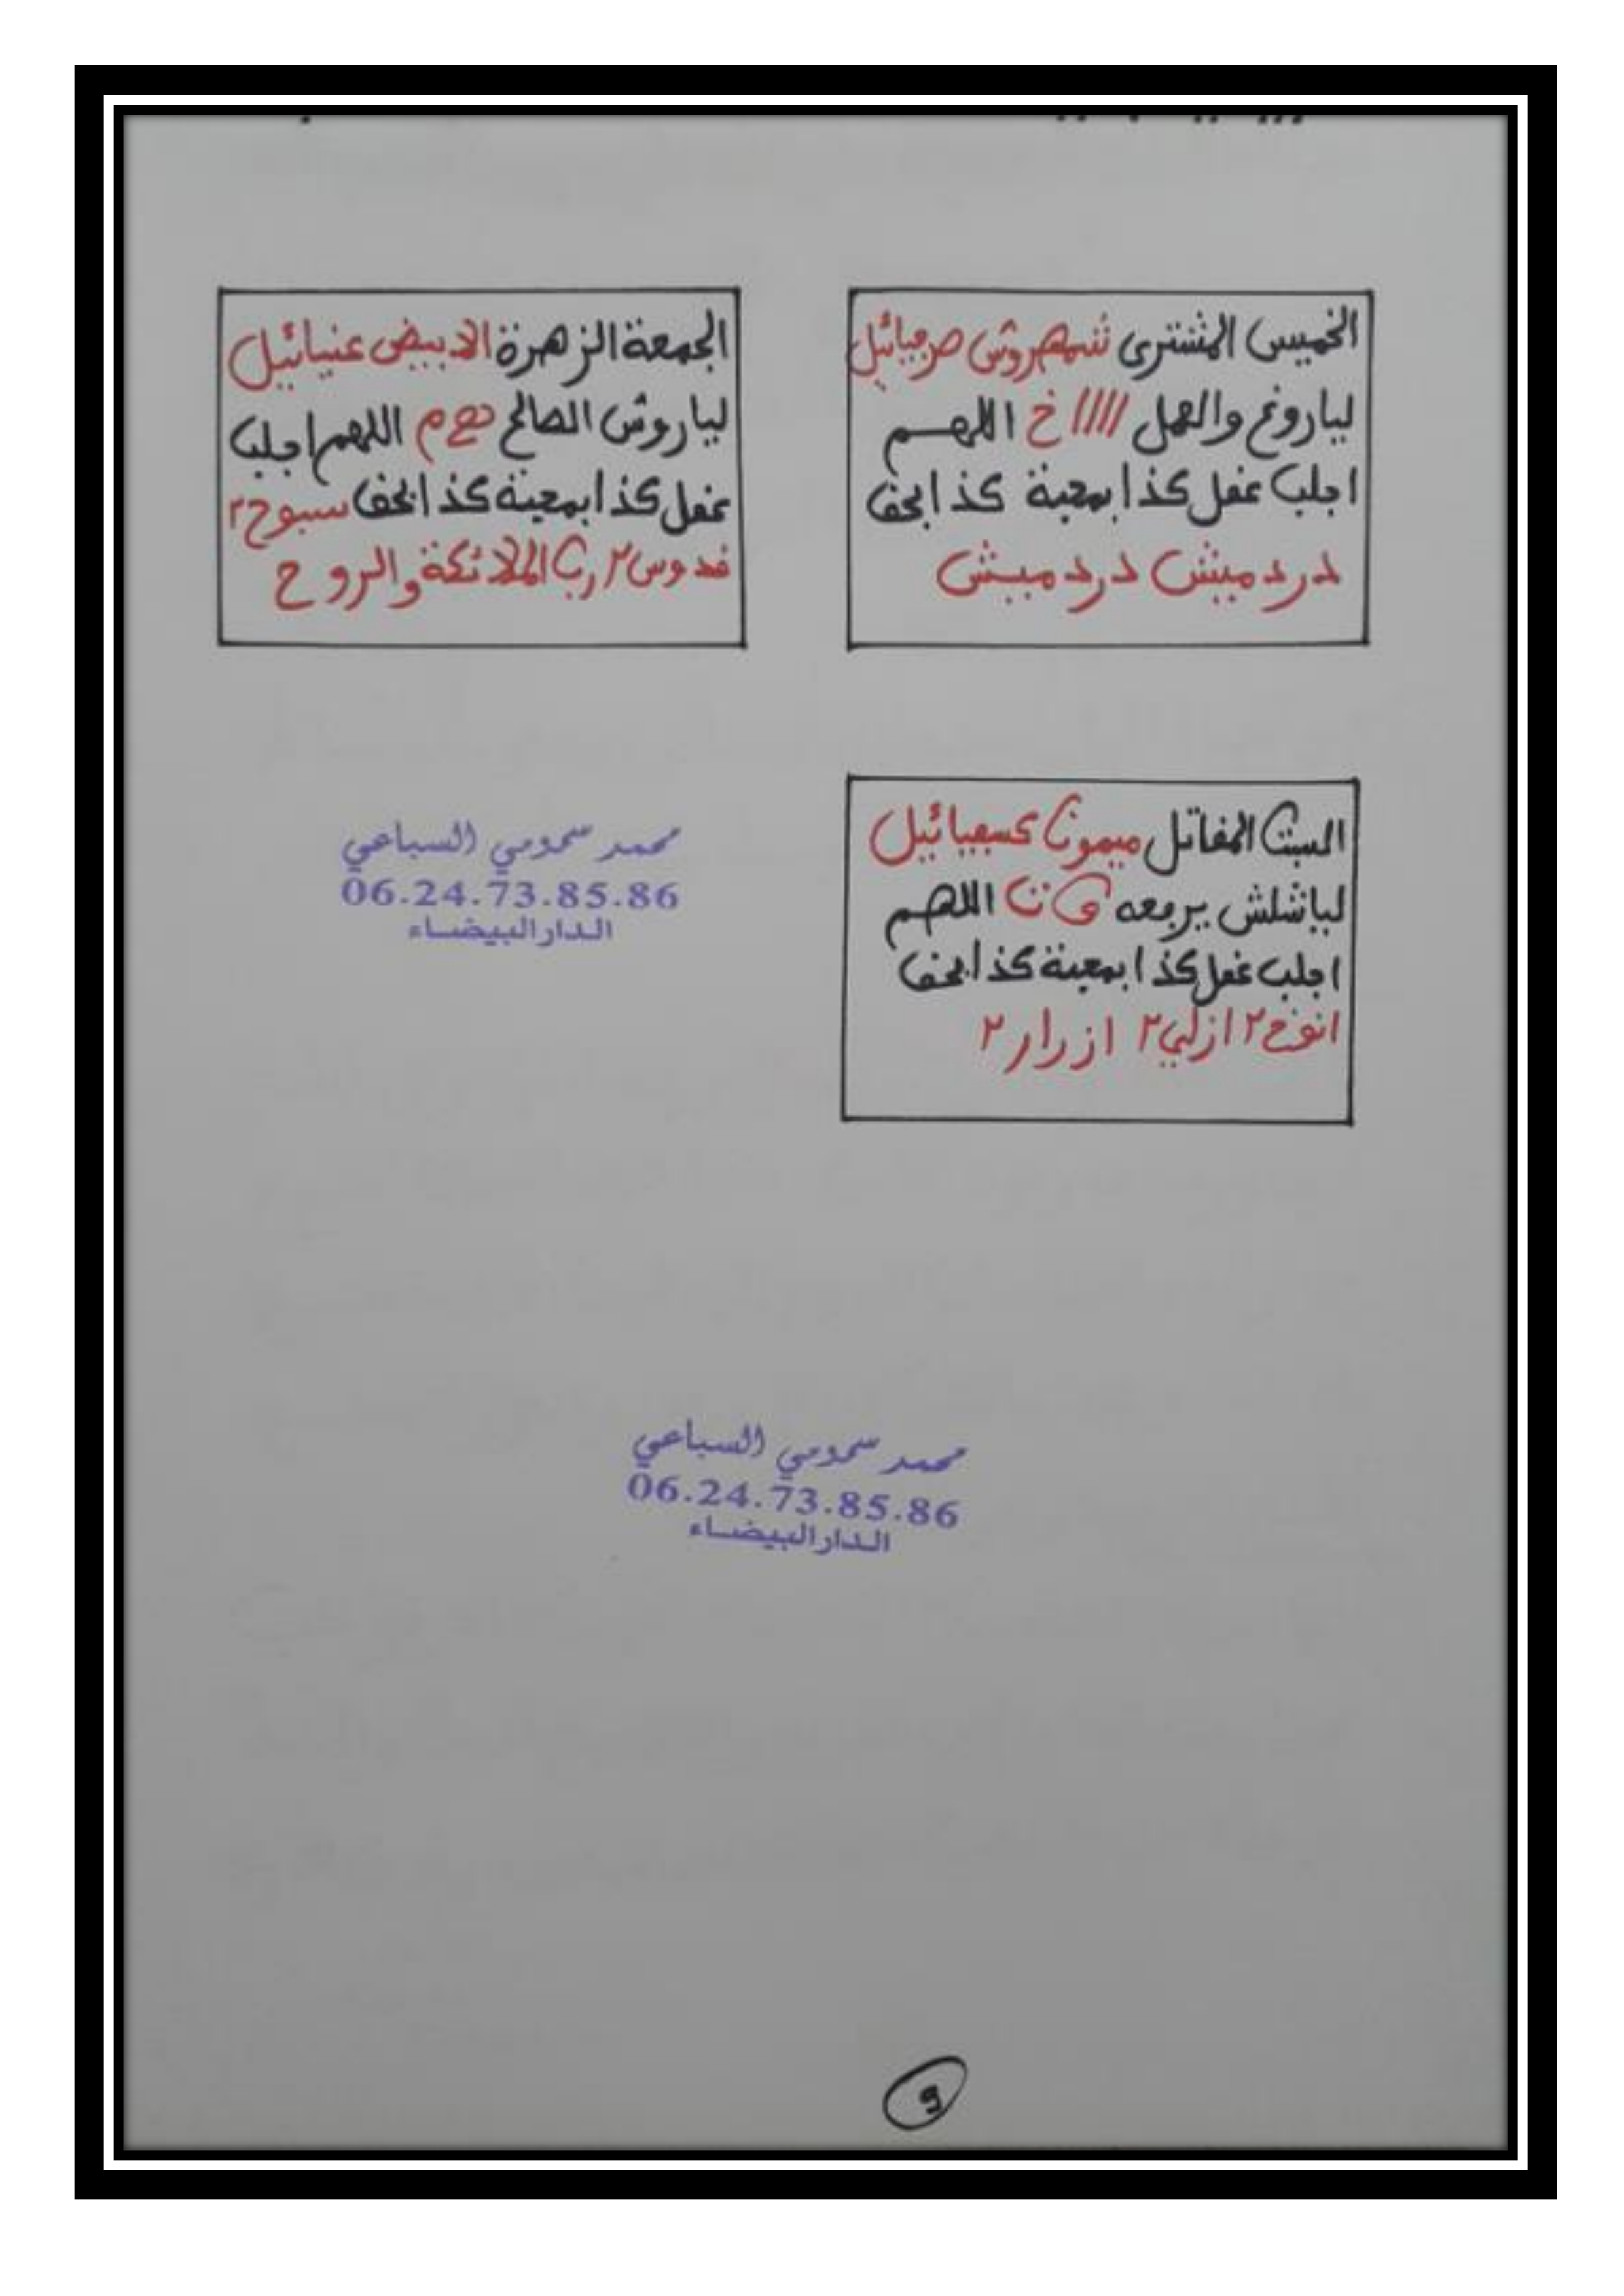 الخميس المشتري شمهروش صرفيائيل
لياروغ والعمل //// خ اللهم
اجلب عفل كذا بمحبة كذا بحق
دردميش دردميش
الجمعة الزهرة الابيض عنيائيل
لياروش الصالح م اللهم اجلب
عفل كذا بمحبة كذا بحق سبوح٢
قدوس٢ رب الملائكة والروح
السبت المقاتل ميمون كسفيائيل
لياشلش اللهم
اجلب عفل كذا بمحبة كذا بحق
انوخ٢ ازلي٢ ازرار٢
محمد سمومي السباعي
06.24.73.85.86
الدار البيضاء
محمد سمومي السباعي
06.24.73.85.86
الدار البيضاء
9